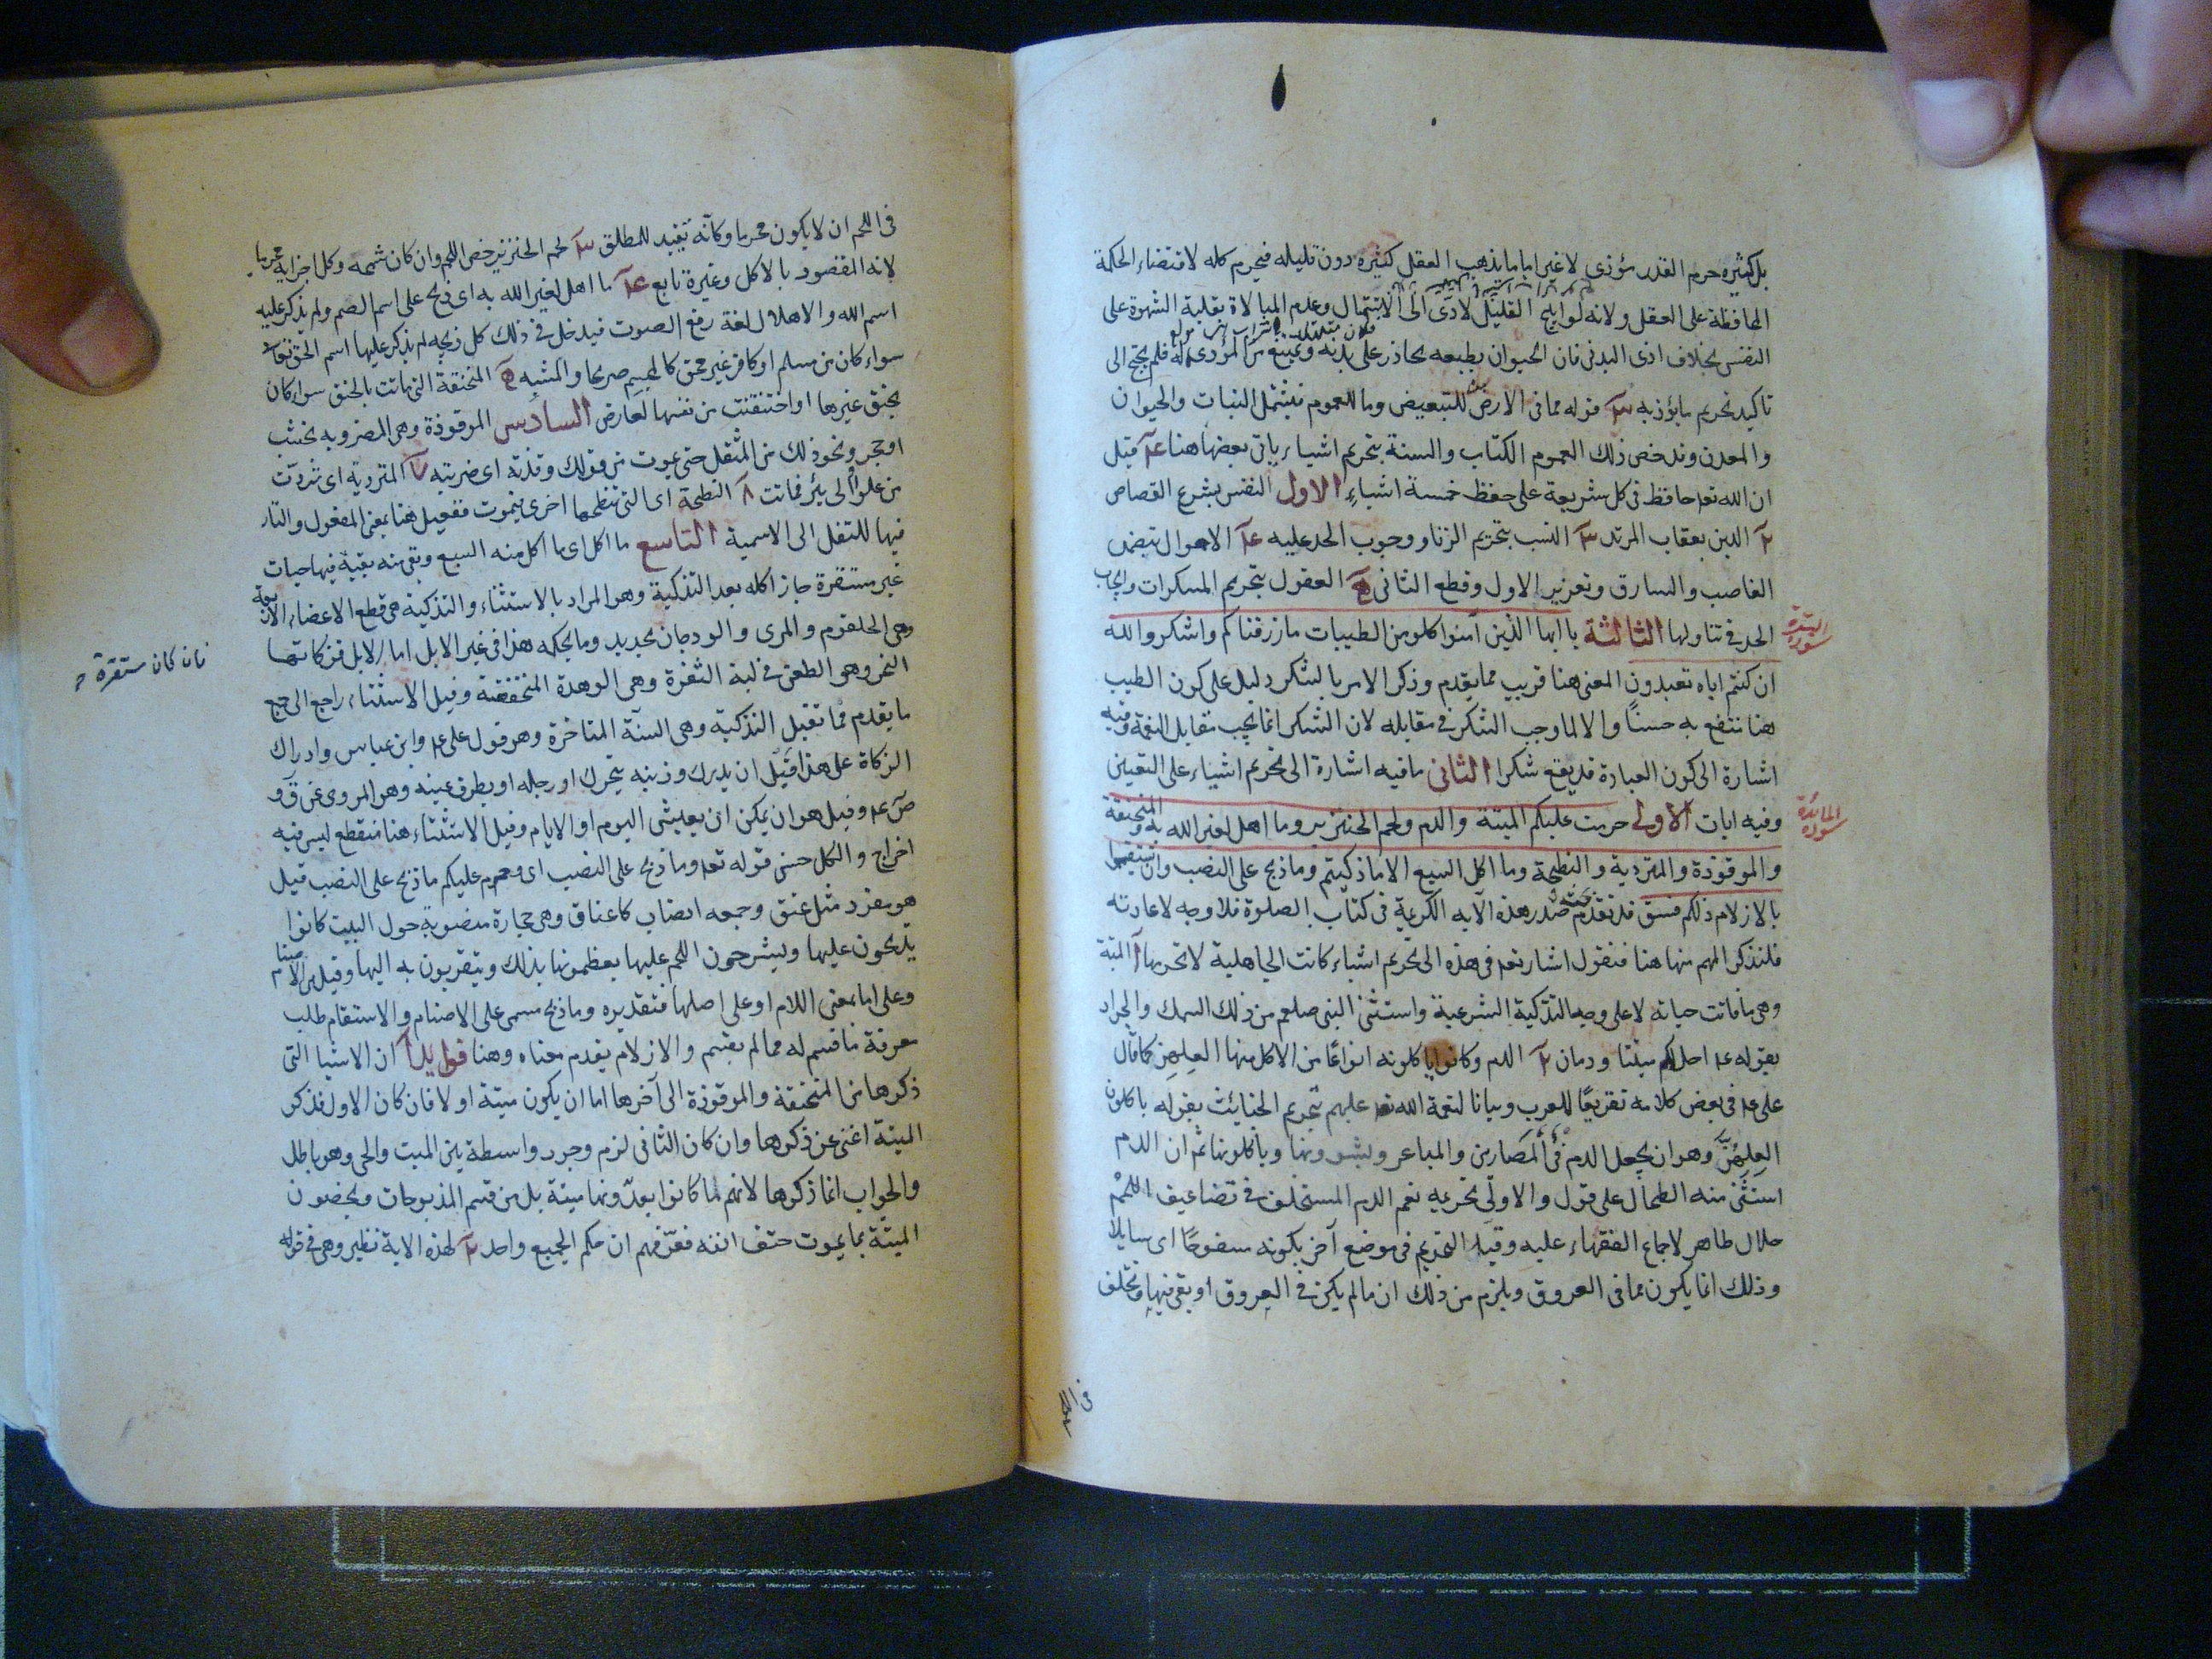 بل كثيره حرم القدر مؤذى لا غير اما ما يذهب العقل كثيره دون قليله فيحرم كله لاقتضاء الحكمة
المحافظة على العقل ولانه لو ابيح القليل لادّى الى وعدم المبالاة بغلبة الشهوة على
النفس بخلاف اذى البدن فان الحيوان بطبعه يحاذر على بدنه ويمتنع من المؤدى له فلم يحتج الى
تاكيد تحريم ما يؤذيه ٣ قوله مما فى الارض من للتبعيض وما للعموم فيشمل النبات والحيوان
والمعدن وقد خص ذلك العموم الكتاب والسنة بتحريم اشياء ياتى بعضها هنا ٤ قيل
ان الله تعه حافظ فى كل شريعة على حفظ خمسة اشياء الاول النفس بشرع القصاص
٢ الدين بعقاب المرتد ٣ النسب بتحريم الزنا ووجوب الحد عليه ٤ الاموال بتضمين
الغاصب والسارق وتعزير الاول وقطع الثانى ٥ العقول بتحريم المسكرات وايجاب
الحد فى تناولها الثالثة يا ايها الذين آمنوا كلوا من الطيبات ما رزقناكم واشكروا لله
سورة البقرة
ان كنتم اياه تعبدون المعنى هنا قريب مما يقدم وذكر الامر بالشكر دليل على كون الطيب
هنا ننتفع به حسنًا والا لما وجب الشكر فى مقابله لان الشكر انما يجب مقابل النعمة وفيه
اشارة الى كون العبادة قد يقع شكرا الثانى ما فيه اشارة الى تحريم اشياء على التعيين
وفيه ايات الاولى حرمت عليكم الميتة والدم ولحم الخنزير وما اهل لغير الله به والمنخنقة
سورة المائدة
والموقوذة والمتردية والنطيحة وما اكل السبع الا ما ذكيتم وما ذبح على النصب وان تستقسموا
بالازلام ذلكم فسق قد تقدم صدر هذه الآية الكريمة فى كتاب الصلوة فلا وجه لاعادته
فلنذكر المهم منها هنا فنقول اشار تعه فى هذه الى تحريم اشياء كانت الجاهلية لا تحرمها ١ الميتة
وهى ما فاتت حياته لا على وجه التذكية الشرعية واستثنى النبى صلعم من ذلك السمك والجراد
بقوله ع احل لكم ميتتا ودمان ٢ الدم وكانوا ياكلونه انواعًا من الاكل منها العلهز كما قال
على ع فى بعض كلامه تقريعًا للعرب وبيانا لنعمة الله تعه عليهم بتحريم الخبائث بقوله ياكلون
العلهز وهو ان يجعل الدم فى المصارين والمباعر ويشوونها وياكلونها ثم ان الدم
استثنى منه الطحال على قول والاولى تحريمه نعم الدم المستخلف فى تضاعيف اللحم
حلال طاهر لاجماع الفقهاء عليه وقيد التحريم فى موضع آخر بكونه مسفوحًا اى سايلا
وذلك انما يكون مما فى العروق ويلزم من ذلك ان ما لم يكن فى العروق او بقى فيها وتخلف
فى اللحم
فى اللحم ان لا يكون محرما وكانه تقييد للمطلق ٣ لحم الخنزير خص اللحم وان كان شحمه وكل اجزايه محرما
لانه المقصود بالاكل وغيره تابع ٤ ما اهل لغير الله به اى ذبح على اسم الصنم ولم يذكر عليه
اسم الله والاهلال لغة رفع الصوت فيدخل فى ذلك كل ذبيحه لم يذكر عليها اسم الحق تعالى
سواء كان من مسلم او كافر غير محق كالمجسم صريحا والمشبه ٥ المنخنقة التى ماتت بالخنق سواء كان
بخنق غيرها او اختنقت من نفسها لعارض السادس الموقوذة وهى المضروبه بخشب
او حجر ونحو ذلك من المثقل حتى يموت من قولك وقذته اى ضربته ٧ المتردية اى تردّت
من علو الى بئر فماتت ٨ النطيحة اى التى تنطحها اخرى فيموت ففعيل هنا بمعنى المفعول والتاء
فيها للنقل الى الاسمية التاسع ما اكل اى ما اكل منه السبع وبقى منه بقية فيها حيات
غير مستقرة جاز اكله بعد التذكية وهو المراد بالاستثناء والتذكية هى قطع الاعضاء الاربعة
فان كان مستقرة
وهى الحلقوم والمرى والودجان بحديد وما بحكمه هذا فى غير الابل اما الابل فذكاتها
النحر وهى الطعن فى لبة الثغرة وهى الوهدة المنخفضة وقيل الاستثناء راجع الى جميع
ما يقدم مما تقبل التذكية وهى الستة المتاخرة وهو قول على ع وابن عباس وادراك
الزكاة على هذا قيل ان يدرك وذنبه يتحرك او رجله او يطرف عينه وهو المروى عن ق و
ص ع وقيل هو ان يمكن ان يعيش اليوم او الايام وقيل الاستثناء هنا منقطع ليس فيه
اخراج والكل حسن قوله تعه وما ذبح على النصب اى وحرم عليكم ما ذبح على النصب قيل
هو مفرد مثل عنق وجمعه انصاب كاعناق وهى حجارة منصوبة حول البيت كانوا
يذبحون عليها ويشرحون اللحم عليها يعظمونها بذلك ويتقربون به اليها وقيل هى الاصنام
وعلى اما بمعنى اللام او على اصلها فتقديره وما ذبح مسمى على الاصنام والاستقسام طلب
معرفة ما قسم له مما لم يقسم والازلام يقدم معناه وهنا فوايد ١ ان الاشيا التى
ذكرها من المنخنقة والموقوذة الى آخرها اما ان يكون ميتة او لا فان كان الاول فذكر
الميتة اغنى عن ذكرها وان كان الثانى لزم وجود واسطة بين الميت والحى وهو باطل
والجواب انما ذكرها لانهم ما كانوا يعدّونها ميتة بل من قسم المذبوحات ويخصون
الميتة بما يموت حتف انفه فعرّفهم ان حكم الجميع واحد ٢ لهذه الاية نظير وهى فى قوله